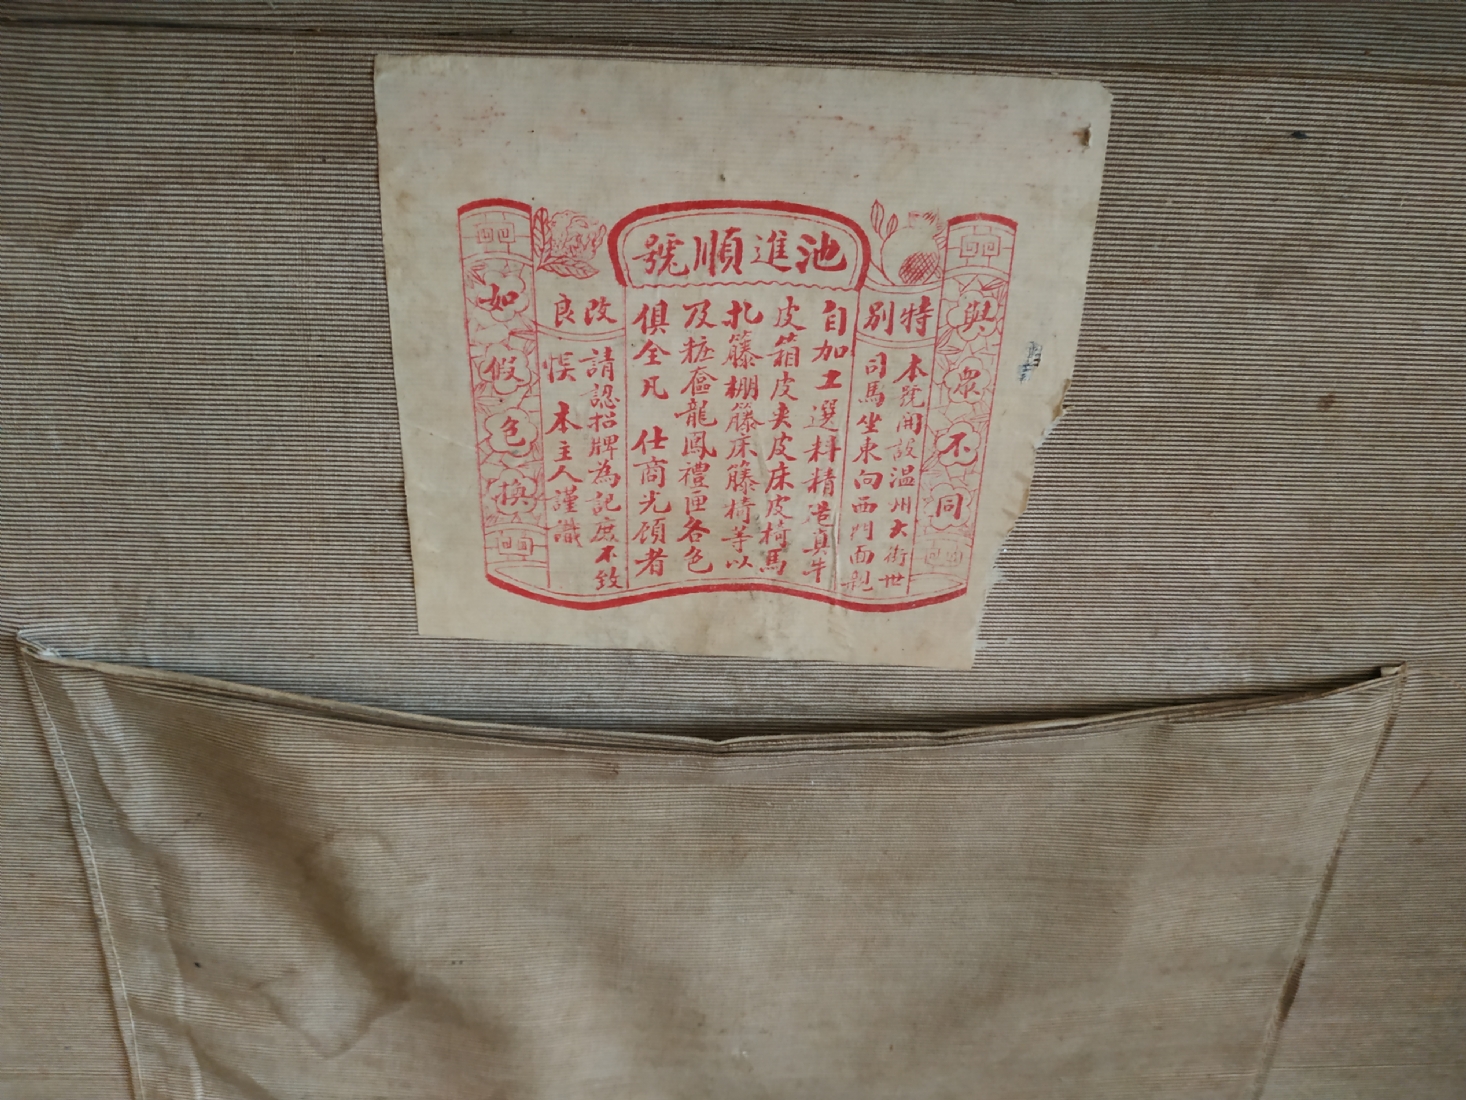 池進順號
與眾不同
特別
本號開設溫州大街世
司馬坐東向西門面親
自加工選料精造真牛
皮箱皮夾皮床皮椅馬
扎籐棚籐床籐椅等以
及粧奩龍鳳禮匣各色
俱全凡 仕商光顧者
改良
請認招牌為記庶不致
悮 本主人謹識
如假色換